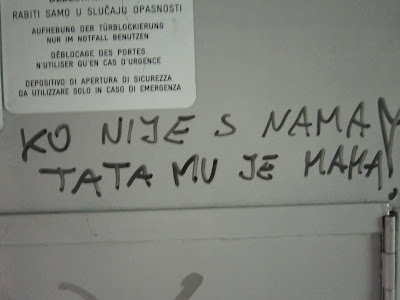 RABITI SAMO U SLUČAJU OPASNOSTI
AUFHEBUNG DER TÜRBLOCKIERUNG
NUR IM NOTFALL BENUTZEN
DÉBLOCAGE DES PORTES
N'UTILISER QU'EN CAS D'URGENCE
DEPOSITIVO DI APERTURA DI SICUREZZA
DA UTILIZZARE SOLO IN CASO DI EMERGENZA
KO NIJE S NAMA
TATA MU JE MAMA!